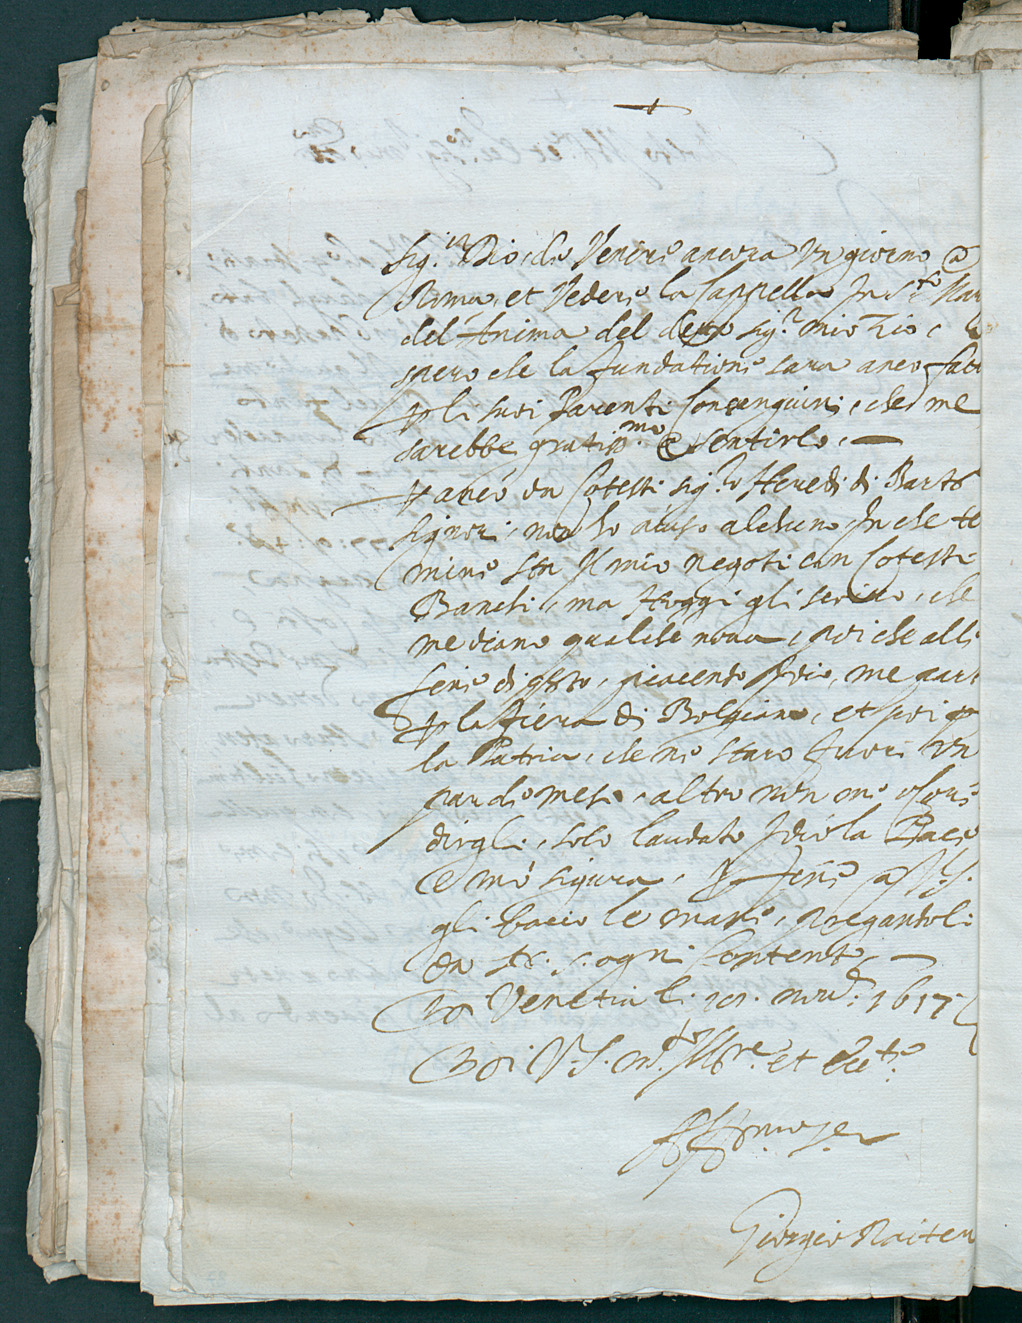 Sig.re Dio, de Venire ancora Un giorno @
Roma, et Vedere la Cappella In S.ta Mar
del Anima del detto sig.r mio Zio, &
spero che la fundatione sara anco fatt
li suoi Parenti Consanguini, che me
sarebbe gratiss.mo @ sentirlo, —
anco da Cotesti sig.ri Heredi di
Signori, non ho aviso alchuno, In che te
mine sta Il mio negoti con Cotesti
Banchi, ma Hoggi gli scrivo, che
me diano qualche nova, poi che alli
fine di q.sto, piacendo Idio, me part
p la fiera di Bolgiano, et poi p
la Patria, che ne staro fuori Un
par de mesi, altro non me
dirgli, solo laudato Idio la Pace
è mo sigura, fine
gli baccio le mani, pregandoli
da ogni Contento, —
Da Venetia li nov. 1617
Di V.S. m.to Ill.re et Ecc.te
Aff.mo
Giorgio Raiten